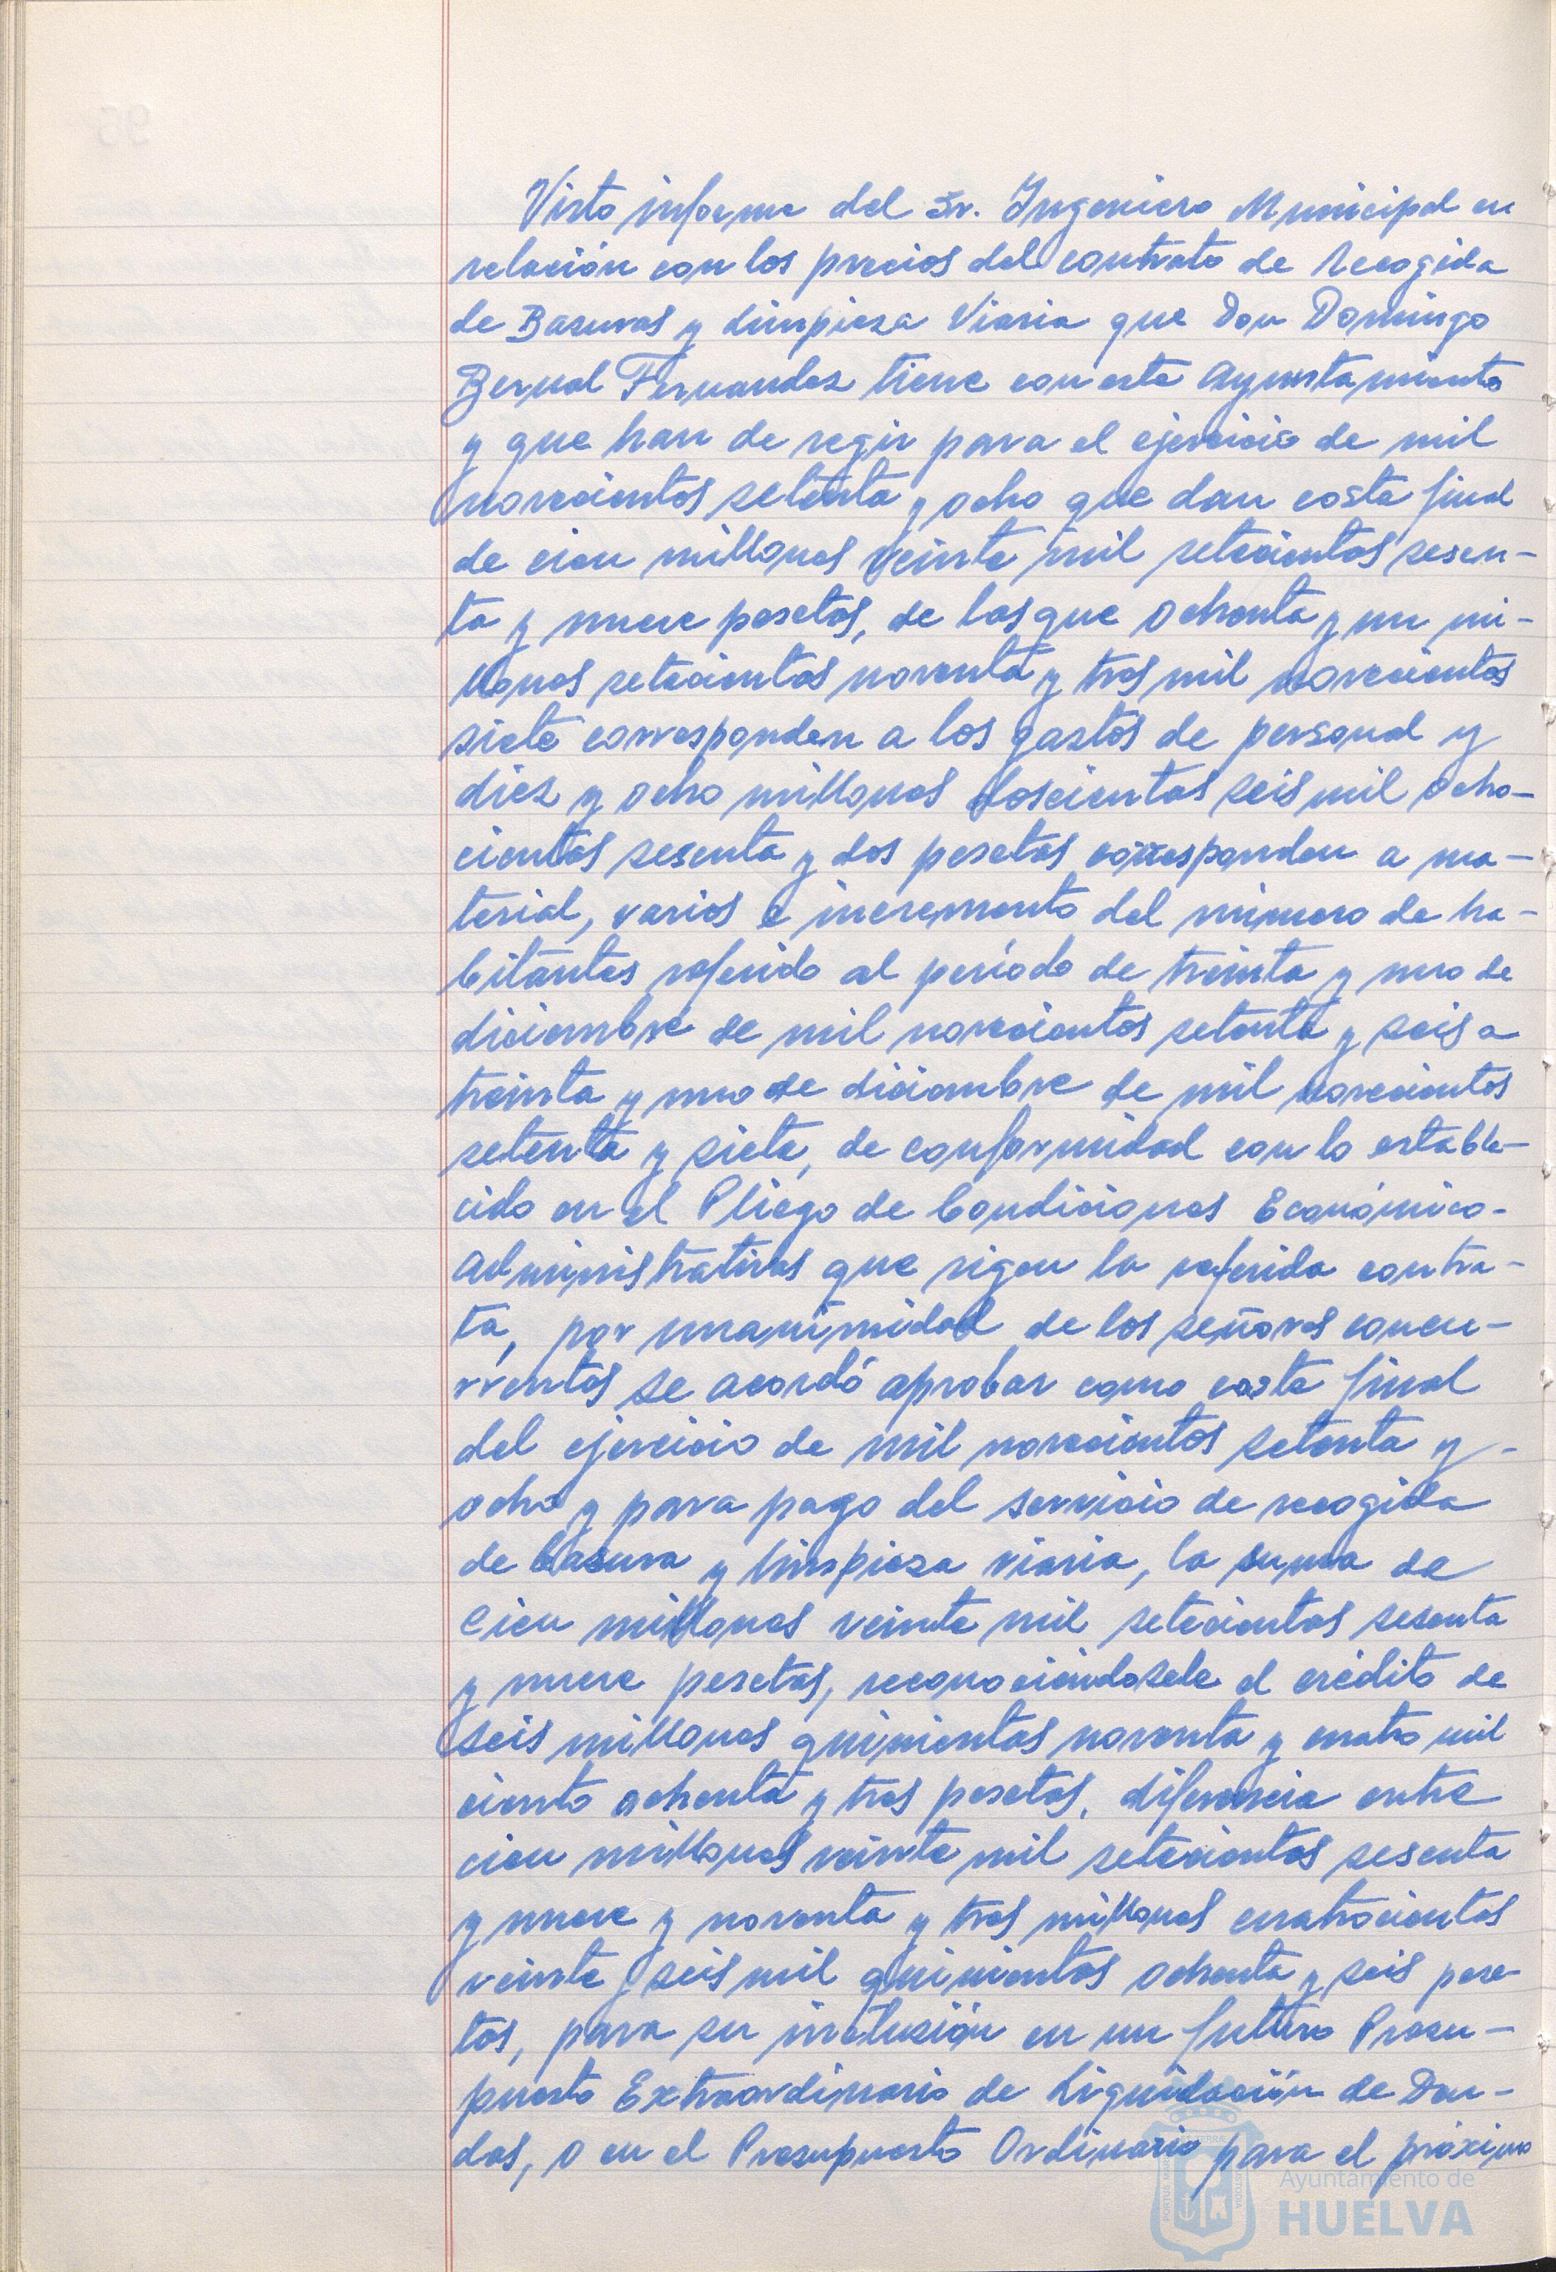 Visto informe del Sr. Ingeniero Municipal en
relación con los precios del contrato de Recogida
de Basuras y Limpieza Viaria que Don Domingo
Bernal Fernandez tiene con este Ayuntamiento
y que han de regir para el ejercicio de mil
novecientos setenta y ocho que dan coste final
de cien millones veinte mil setecientos sesen-
ta y nueve pesetas, de las que ochenta y un mi-
llones setecientos noventa y tres mil novecientos
siete corresponden a los gastos de personal y
diez y ocho millones doscientas seis mil ocho-
cientas sesenta y dos pesetas corresponden a ma-
terial, varios e incremento del número de ha-
bitantes referido al período de treinta y uno de
diciembre de mil novecientos setenta y seis a
treinta y uno de diciembre de mil novecientos
setenta y siete, de conformidad con lo estable-
cido en el Pliego de Condiciones Económico-
Administrativas que rigen la referida contra-
ta, por unanimidad de los señores concu-
rrentes se acordó aprobar como coste final
del ejercicio de mil novecientos setenta y -
ocho y para pago del servicio de recogida
de basura y limpieza viaria, la suma de
cien millones veinte mil setecientas sesenta
y nueve pesetas, reconociéndosele el crédito de
seis millones quinientas noventa y cuatro mil
ciento ochenta y tres pesetas, diferencia entre
cien millones veinte mil setecientas sesenta
y nueve y noventa y tres millones cuatrocientas
veinte y seis mil quinientas ochenta y seis pese-
tas, para su inclusión en un futuro Presu-
puesto Extraordinario de Liquidación de Deu-
das, o en el Presupuesto Ordinario para el próximo
Ayuntamiento de
HUELVA